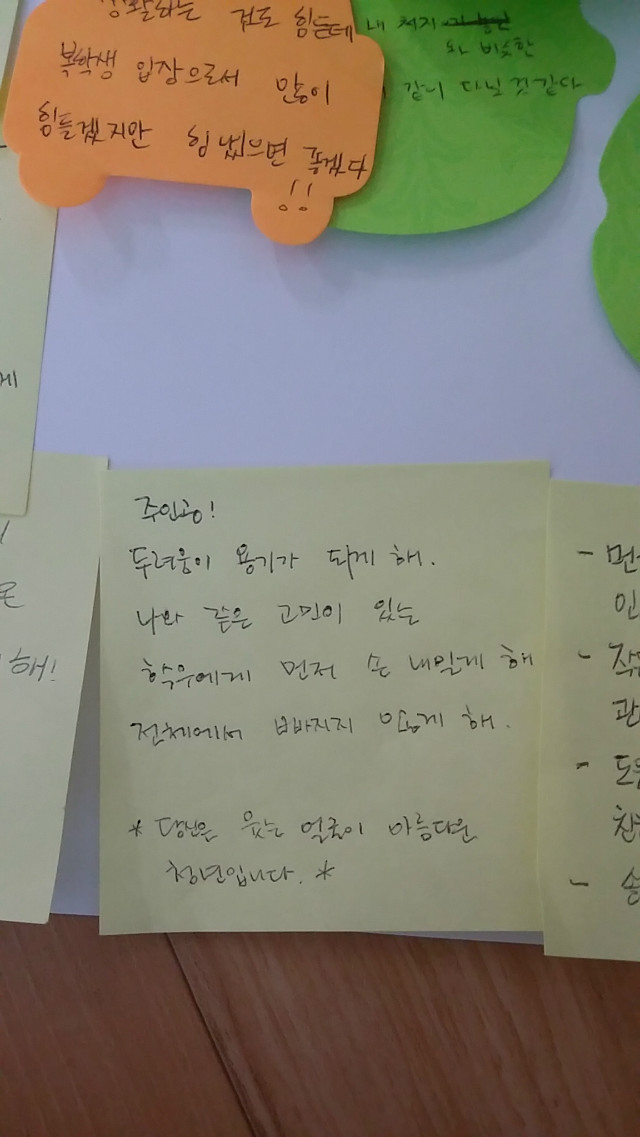 생활하는 것도 힘든데
복학생 입장으로서 많이
힘들겠지만 힘 냈으면 좋겠다
!!
내 처지
와 비슷한
같이 다닐 것 같다
게
해!
주인공!
두려움이 용기가 되게 해.
나와 같은 고민이 있는
학우에게 먼저 손 내밀게 해
전체에서 빠지지 않게 해.
* 당신은 웃는 얼굴이 아름다운
청년입니다. *
- 먼
인
-
관
- 도
친
- 송